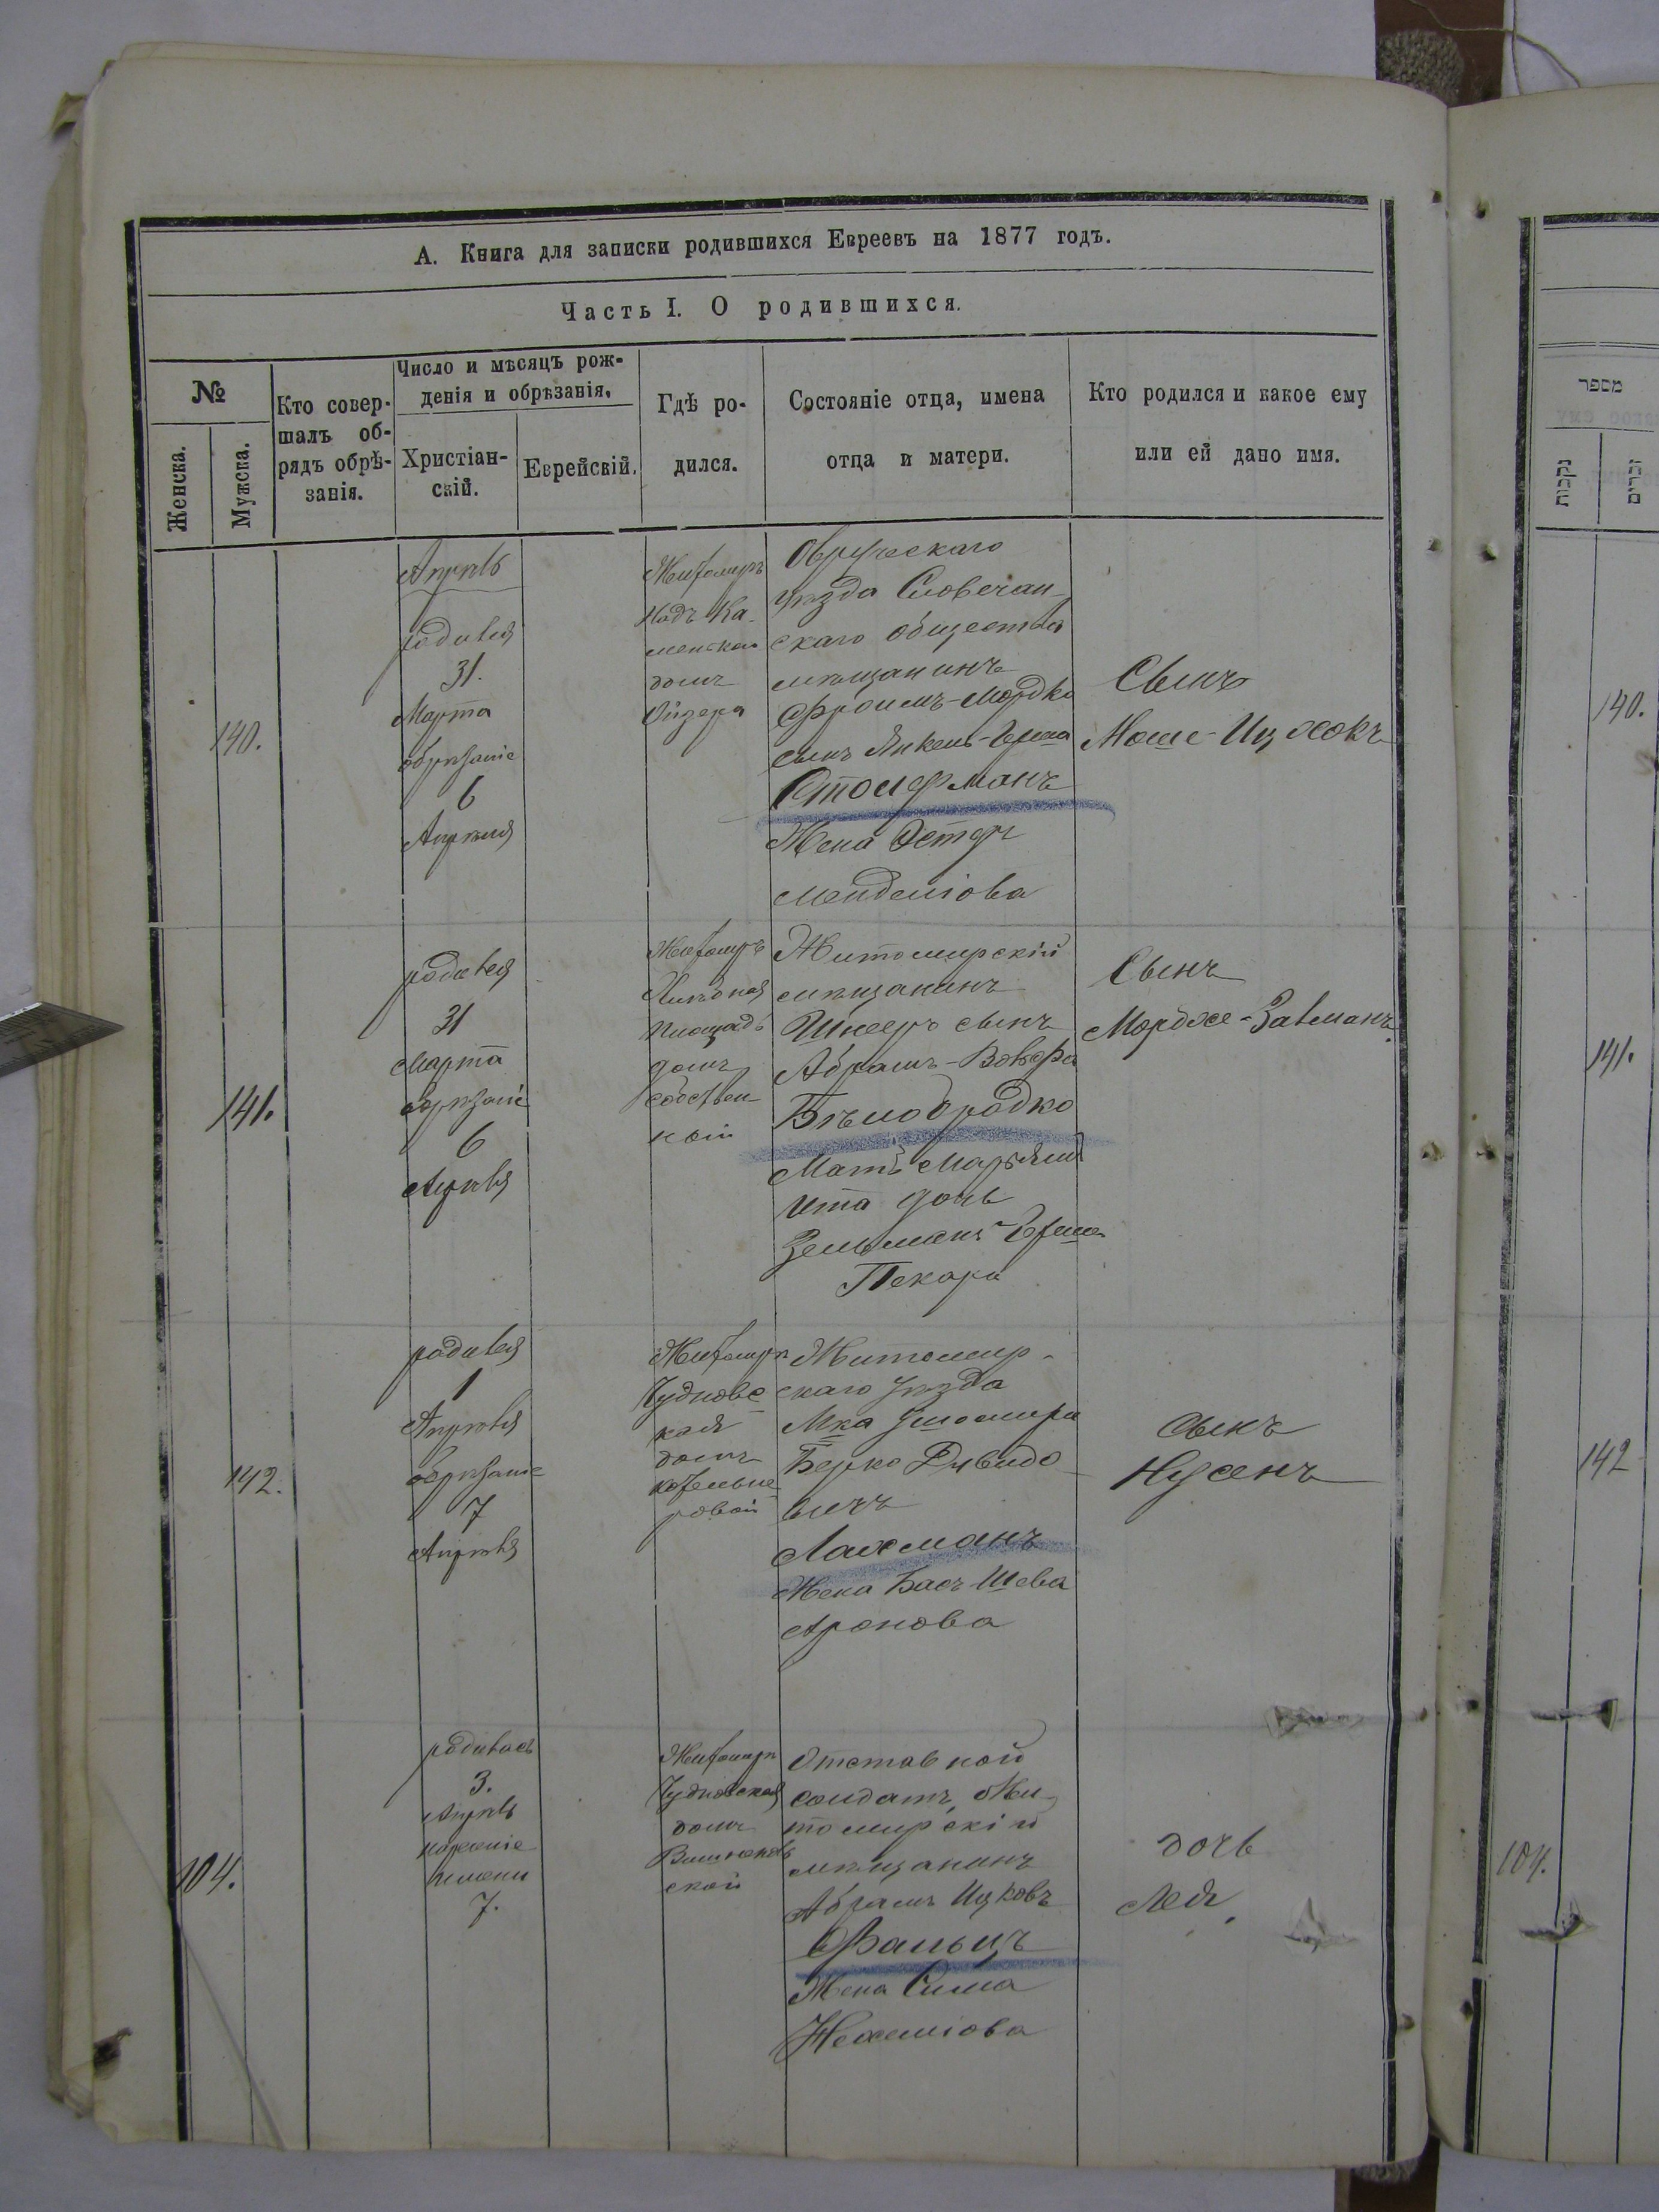 А. Книга для записки родившихся Евреевъ на 1877 годъ.
Часть I. О родившихся.
№
Женска.
Мужска.
Кто совер-
шалъ об-
рядъ обрѣ-
занія.
Число и мѣсяцъ рож-
денія и обрѣзанія.
Христіан-
скій.
Еврейскій.
Гдѣ ро-
дился.
Состояніе отца, имена
отца и матери.
Кто родился и какое ему
или ей дано имя.
140.
Апрѣль
родился
31.
Марта
обрѣзаніе
6
Апрѣля
Житомиръ
домъ
Овручскаго
уѣзда Словечан-
скаго общества
мѣщанинъ
Фроимъ-Мордко
сынъ Янкель-Герша
Стоифманъ
Жена Эстеръ
Менделіова
Сынъ
Моше-Ицхокъ
141.
родился
31
Марта
обрѣзаніе
6
Апрѣля
Житомиръ
Хлѣбная
площадь
домъ
собствен-
ной
Житомирскій
мѣщанинъ
Шнееръ сынъ
Абрамъ-Вольфа
Бѣлобродко
Мать Марьямъ
Ита дочь
Зельманъ-Герша
Пекаря
Сынъ
Мордхе-Залманъ
142.
родился
1
Апрѣля
обрѣзаніе
7
Апрѣля
Житомиръ
Чудновс
кая
домъ
Котельне
ровой
Житомир-
скаго уѣзда
Мка Ушомира
Берко Дувидо-
вичъ
Лахманъ
Жена Бась Шева
Аронова
Сынъ
Нусенъ
104.
родилась
3.
Апрѣль
нареченіе
имени
7.
Житомиръ
Чудновская
домъ
Отставной
солдатъ, Жи-
томирскій
мѣщанинъ
Абрамъ Ицковъ
Фальцъ
Жена Сима
Нехеміова
дочь
Лея
מספר
נקבות
זכרים
140.
141.
142
104.